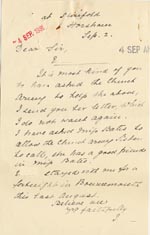 at Slinfold
Horsham
Sep. 2.
4 SEP
4 SEP
Dear Sir,
It is most kind of you
to have asked the Church
Army to help the above,
I send you her letter which
I do not want again.
I have asked Miss Bates to
allow the Church Army Sister
to call, she has a good friend
in Miss Bates
stayed with me for a
in Bournemouth
this last August.
Believe me
yrs faithfully